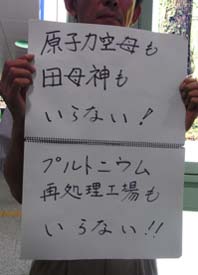 原子力空母も
田母神も
いらない!
プルトニウム
再処理工場も
いらない!!